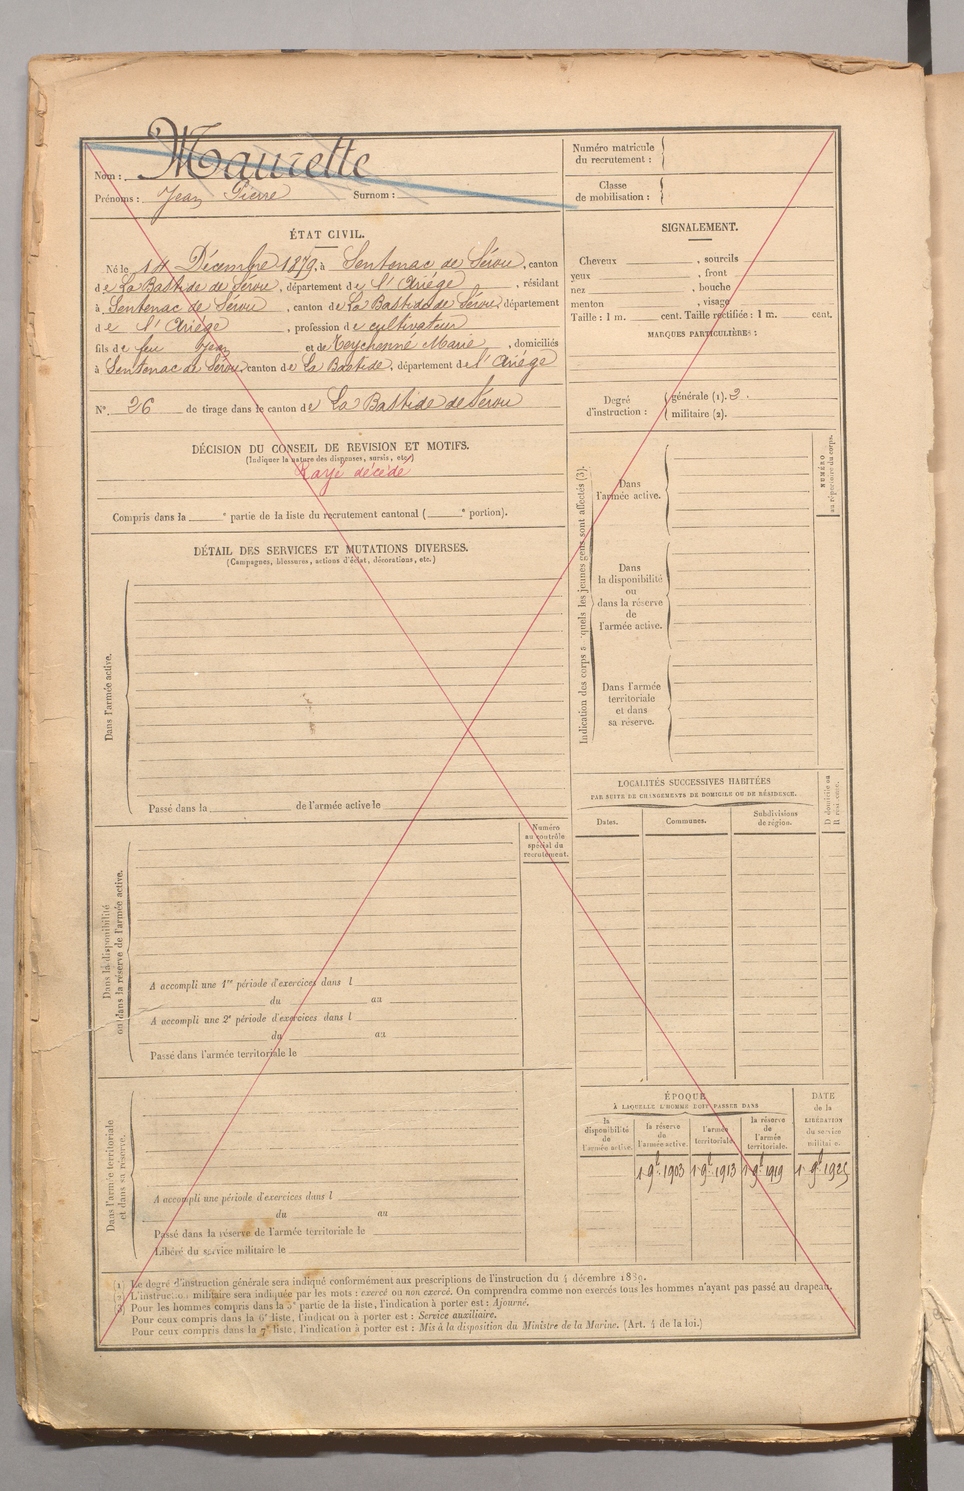 Nom : Maurette
Prénoms : Jean Pierre Surnom :
ÉTAT CIVIL.
Né le 14 Décembre 1879, à Sentenac de Sérou, canton
de La Bastide de Sérou, département de l'Ariège, résidant
à Sentenac de Sérou, canton de La Bastide de Sérou, département
de l'Ariège, profession de cultivateur
fils de feu Jean et de Teychenné Marie, domiciliés
à Sentenac de Sérou, canton de La Bastide, département de l'Ariège
N° 26 de tirage dans le canton de La Bastide de Sérou
DÉCISION DU CONSEIL DE REVISION ET MOTIFS.
(Indiquer la nature des dispenses, sursis, etc.)
Rayé décédé
Compris dans la e partie de la liste du recrutement cantonal ( e portion).
DÉTAIL DES SERVICES ET MUTATIONS DIVERSES.
(Campagnes, blessures, actions d'éclat, décorations, etc.)
Dans l'armée active.
Passé dans la de l'armée active le
Numéro
au contrôle
spécial du
recrutement.
Dans la disponibilité
ou dans la réserve de l'armée active.
A accompli une 1re période d'exercices dans l
du au
A accompli une 2e période d'exercices dans l
du au
Passé dans l'armée territoriale le
Dans l'armée territoriale
et dans sa réserve.
A accompli une période d'exercices dans l
du au
Passé dans la réserve de l'armée territoriale le
Libéré du service militaire le
Numéro matricule
du recrutement :
Classe
de mobilisation :
SIGNALEMENT.
Cheveux , sourcils
yeux , front
nez , bouche
menton , visage
Taille : 1 m. cent. Taille rectifiée : 1 m. cent.
MARQUES PARTICULIÈRES :
Degré
d'instruction :
générale (1). 3.
militaire (2).
Indication des corps auxquels les jeunes gens sont affectés (3).
Dans
l'armée active.
Dans
la disponibilité
ou
dans la réserve
de
l'armée active.
Dans l'armée
territoriale
et dans
sa réserve.
NUMÉRO
au répertoire du corps.
LOCALITÉS SUCCESSIVES HABITÉES
PAR SUITE DE CHANGEMENTS DE DOMICILE OU DE RÉSIDENCE.
Dates. Communes. Subdivisions
de région.
D domicile ou
R résidence.
ÉPOQUE
À LAQUELLE L'HOMME DOIT PASSER DANS
la
disponibilité
de
l'armée active.
la réserve
de
l'armée active.
l'armée
territoriale.
la réserve
de
l'armée
territoriale.
DATE
de la
LIBÉRATION
du service
militaire.
1 9bre 1903 1 9bre 1913 1 9bre 1919 1 9bre 1925
(1) Le degré d'instruction générale sera indiqué conformément aux prescriptions de l'instruction du 4 décembre 1889.
(2) L'instruction militaire sera indiquée par les mots : exercé ou non exercé. On comprendra comme non exercés tous les hommes n'ayant pas passé au drapeau.
(3) Pour les hommes compris dans la 5e partie de la liste, l'indication à porter est : Ajourné.
Pour ceux compris dans la 6e liste, l'indication à porter est : Service auxiliaire.
Pour ceux compris dans la 7e liste, l'indication à porter est : Mis à la disposition du Ministre de la Marine. (Art. 4 de la loi.)